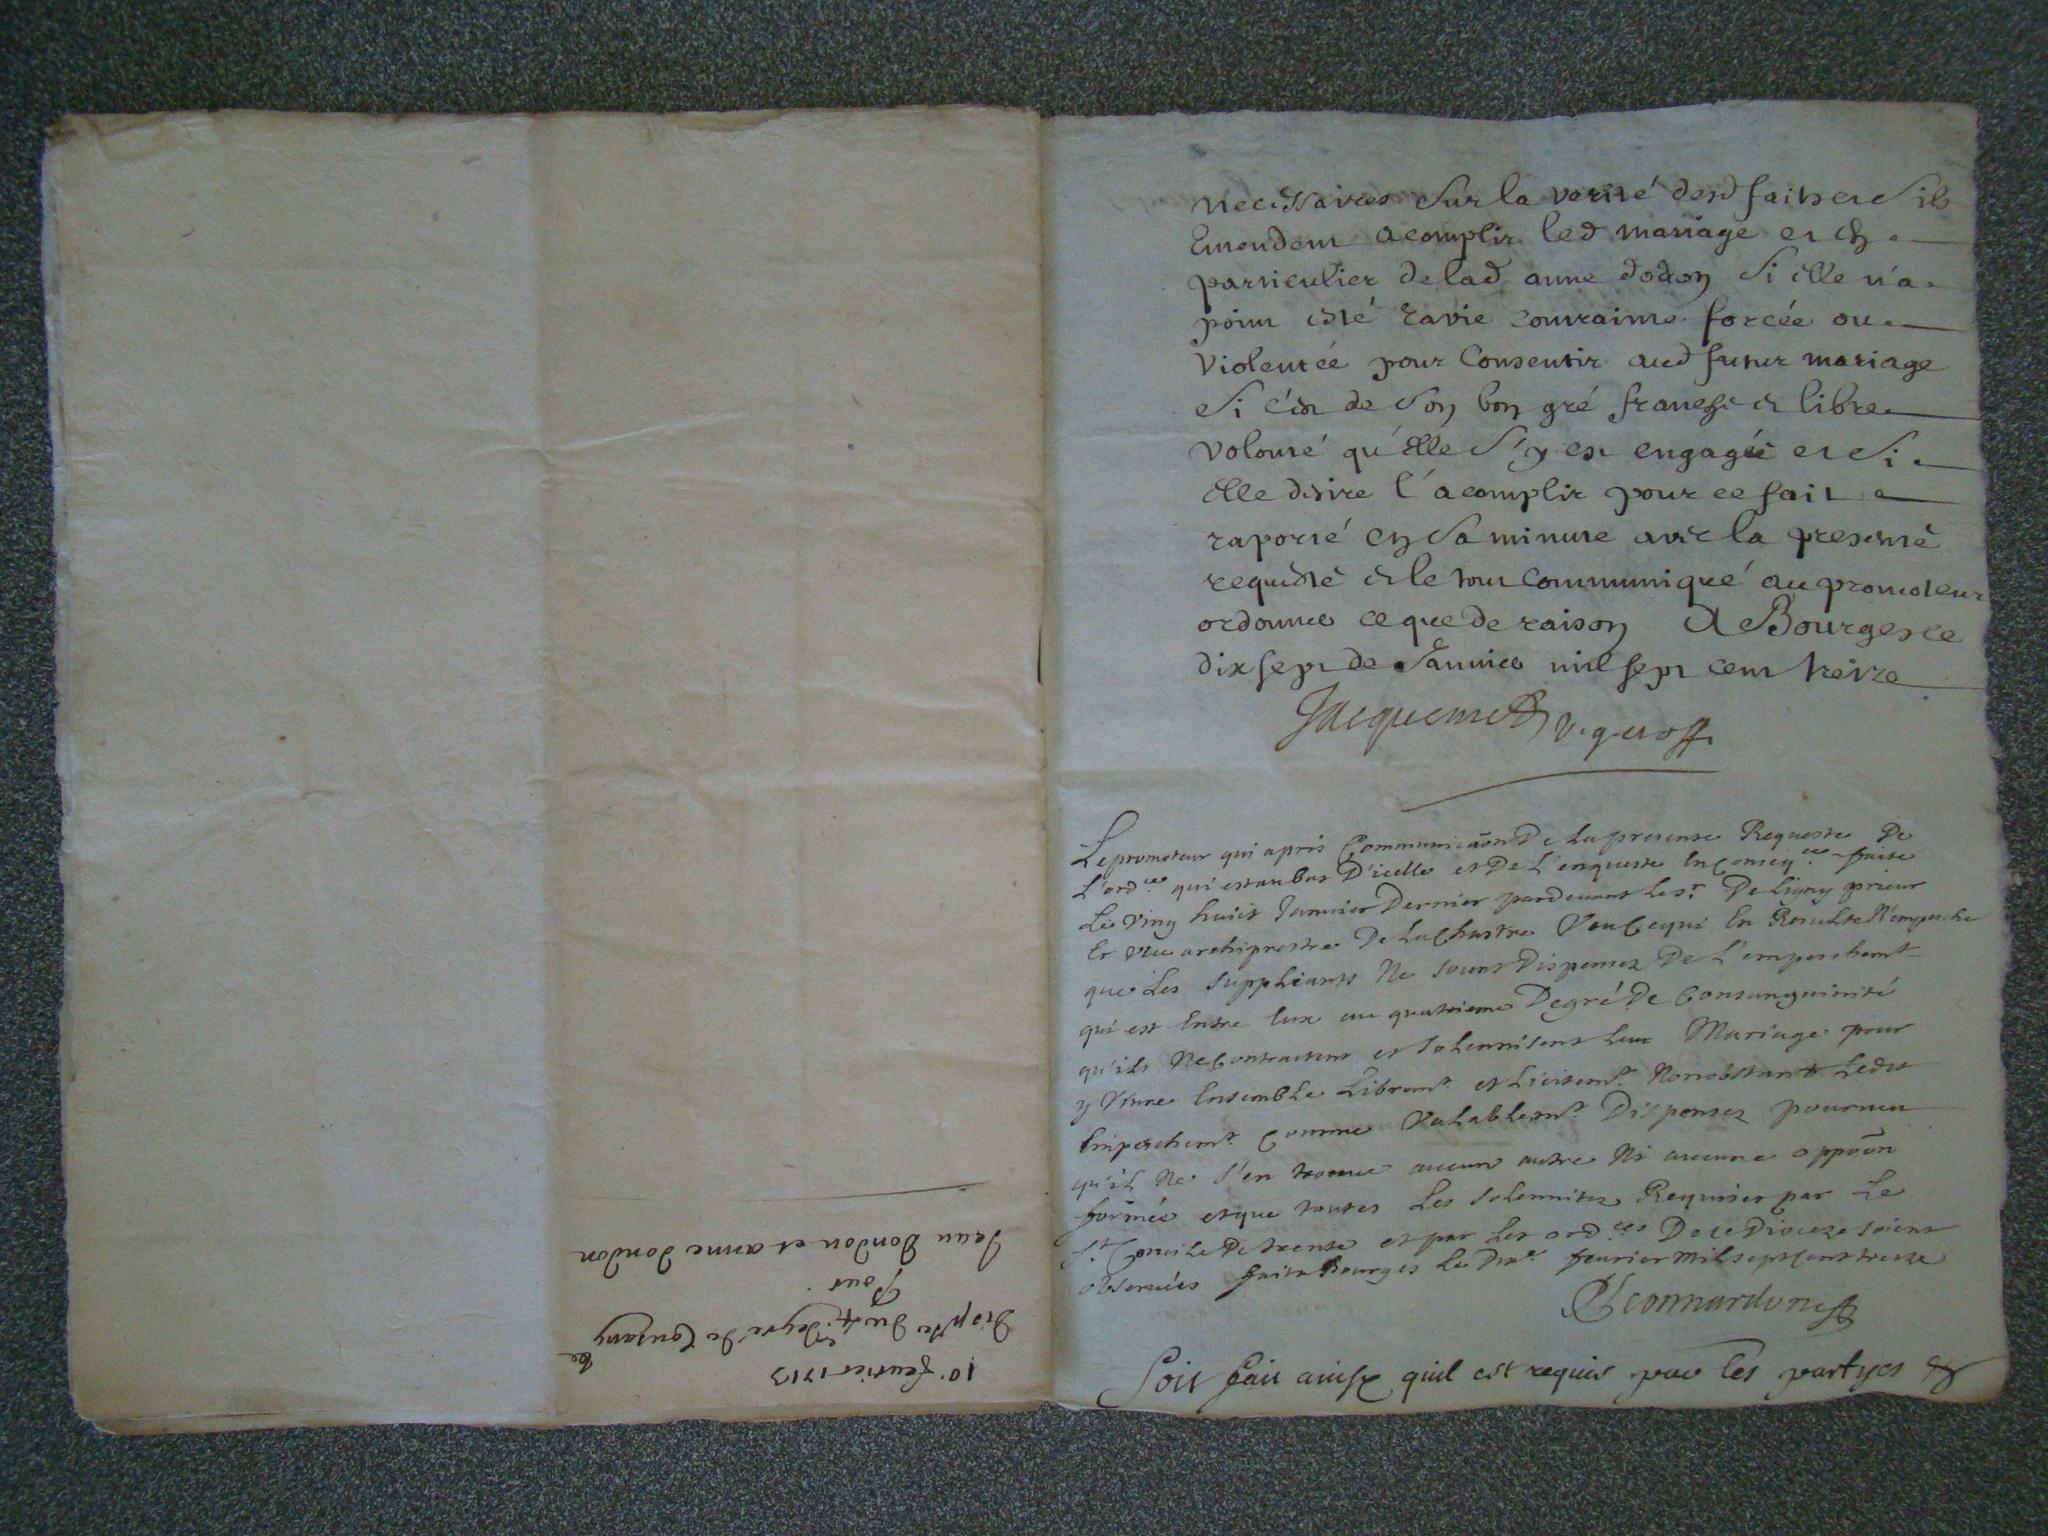 10e feurier 1713
disp^ce du 4e degré de Consang^té
Pour
Jean dondon et anne dondon
necessaires sur la verité desd faits et s'ils
Entendent acomplir led mariage et En
particulier de lad anne dodon si elle n'a
point esté ravie contrainte forcée ou
Violentée pour Consentir aud futur mariage
si c'est de son bon gré franche et libre
volonté qu'Elle s'y est engagée et si
elle desire l'acomplir pour ce fait
raporté en sa minute avec la presente
requeste et le tout Communiqué au promoteur
ordonner ce que de raison A Bourges ce
dix sept de Janvier mil sept cent treize
Jacquemet v. g. et off.
Le promoteur qui apris Communicãon De la presente Requeste De
L'ord^ce qui est au bas D'icelle et De L'enqueste En Conseq^ce faite
Le ving huict Januier Dernier pardeuant Le s^r De Ligny prieur
Et vic archiprestre De La Chastre Veu Ce qui En Resulte N'empesche
que Les suppliants Ne soient Dispensez De L'empeschem^t
qui est Entre Eux au quatrieme Degré De Consanguinité
qu'ils Ne Contractent et solemnisent Leur Mariage pour
y Viure Ensemble Librem^t et Licitem^t Nonobstant Ledit
Empeschem^t Comme Valablem^t Dispensez pourueu
qu'il Ne s'en trouue aucun autre Ni aucune oppõon
formée et que toutes Les solemnitez Requises par Le
s^t Concile De trente et par Les ord^ces De ce Dioceze soient
obseruées fait a Bourges Le Dix^e feurier Mil sept Cent treize
Leonnardon
Soit fait ainsy quil est requis par les partyes &